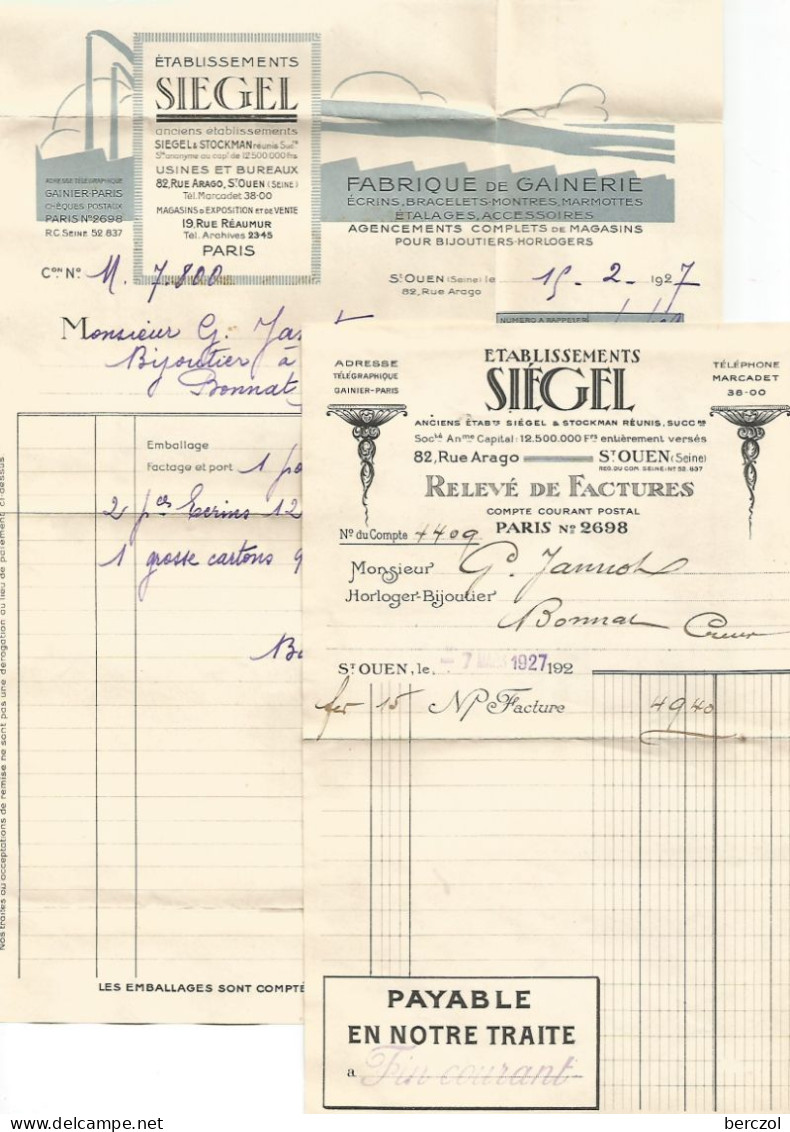 ÉTABLISSEMENTS
SIEGEL
anciens établissements
SIEGEL & STOCKMAN réunis Succrs
Sté anonyme au capal de 12 500 000 frs
USINES ET BUREAUX
82, RUE ARAGO, ST OUEN (SEINE)
Tél. Marcadet 38-00
MAGASINS D'EXPOSITION ET DE VENTE
19, RUE RÉAUMUR
Tél. Archives 2345
PARIS
ADRESSE TÉLÉGRAPHIQUE
GAINIER-PARIS
CHÈQUES POSTAUX
PARIS No 2698
R.C SEINE 52 837
FABRIQUE DE GAINERIE
ÉCRINS, BRACELETS-MONTRES, MARMOTTES
ÉTALAGES, ACCESSOIRES
AGENCEMENTS COMPLETS DE MAGASINS
POUR BIJOUTIERS-HORLOGERS
Con No M. 7.800
ST OUEN (Seine) le 15. 2. 1927
82, Rue Arago
NUMÉRO A RAPPELER
Monsieur G. Jan
Bijoutier à
Bonnat
Emballage
Factage et port 1 po
2 pces Ecrins 12
1 grosse cartons 9
Nos traites ou acceptations de remise ne sont pas une dérogation au lieu de paiement ci-dessus
LES EMBALLAGES SONT COMPTÉ
ADRESSE
TÉLÉGRAPHIQUE
GAINIER-PARIS
ETABLISSEMENTS
SIÉGEL
TÉLÉPHONE
MARCADET
38-00
ANCIENS ÉTABts SIÉGEL & STOCKMAN RÉUNIS, SUCCrs
Socté Anme Capital: 12.500.000 Frs entièrement versés
82, Rue Arago ST OUEN (Seine)
REG. DU COM. SEINE: No 52.837
RELEVÉ DE FACTURES
COMPTE COURANT POSTAL
PARIS No 2698
No du Compte 4409
Monsieur G. Jannot
Horloger-Bijoutier
Bonnat Creuse
ST OUEN, le 7 1927 192
fer 15 N/ Facture 49 40
PAYABLE
EN NOTRE TRAITE
a Fin courant
berczol